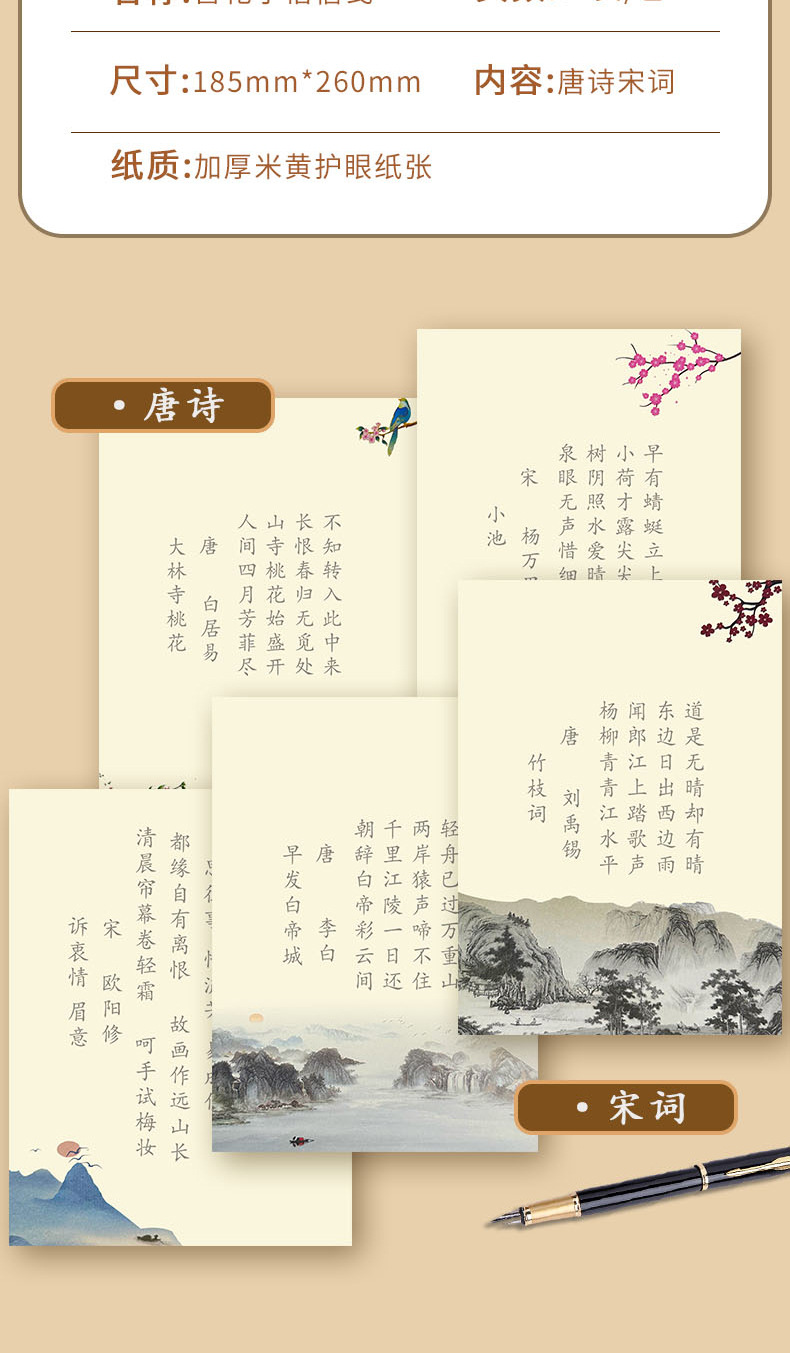 尺寸:185mm*260mm
内容:唐诗宋词
纸质:加厚米黄护眼纸张
· 唐诗
大林寺桃花
唐 白居易
人间四月芳菲尽
山寺桃花始盛开
长恨春归无觅处
不知转入此中来
小池
宋 杨万
泉眼无声惜细
树阴照水爱晴
小荷才露尖尖
早有蜻蜓立上
竹枝词
唐 刘禹锡
杨柳青青江水平
闻郎江上踏歌声
东边日出西边雨
道是无晴却有晴
早发白帝城
唐 李白
朝辞白帝彩云间
千里江陵一日还
两岸猿声啼不住
轻舟已过万重山
诉衷情 眉意
宋 欧阳修
清晨帘幕卷轻霜 呵手试梅妆
都缘自有离恨 故画作远山长
· 宋词